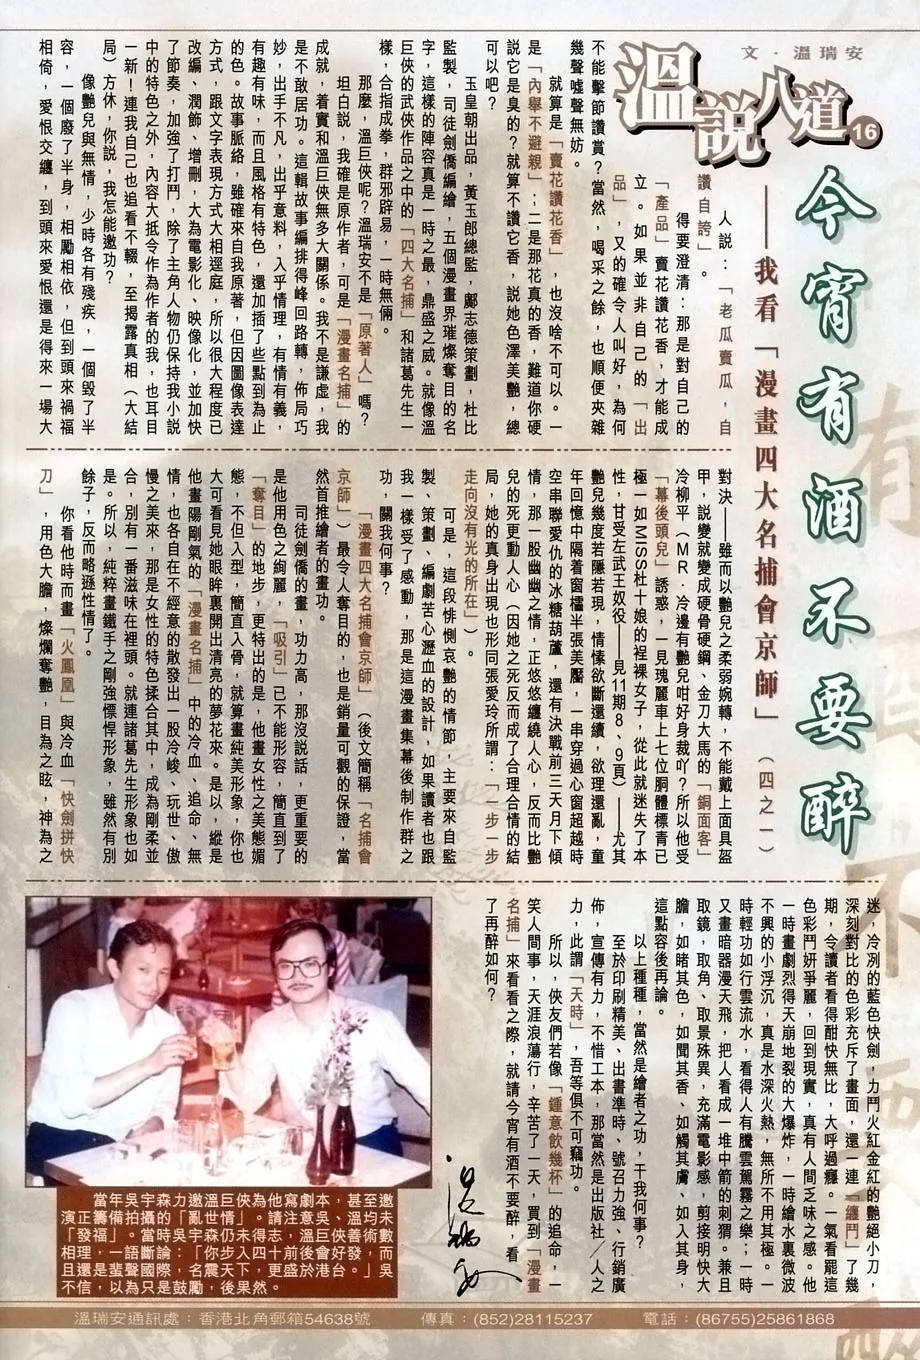 文．溫瑞安
溫說八道
16
今宵有酒不要醉
——我看「漫畫四大名捕會京師」（四之一）
人說：「老瓜賣瓜，自
讚自誇」。
得要澄清：那是對自己的
「產品」賣花讚花香，才能成
立。如果並非自己的「出
品」，又的確令人叫好，為何
不能擊節讚賞？當然，喝采之餘，也順便夾雜
幾聲噓聲無妨。
就算是「賣花讚花香」，也沒啥不可以。一
是「內舉不避親」；二是那花真的香，難道你硬
說它是臭的？就算不讚它香，說她色澤美艷，總
可以吧？
玉皇朝出品，黃玉郎總監，鄺志德策劃，杜比
監製，司徒劍僑編繪，五個漫畫界璀燦奪目的名
字，這樣的陣容真是一時之最，鼎盛之威。就像溫
巨俠的武俠作品之中的「四大名捕」和諸葛先生一
樣，合指成拳，群邪辟易，一時無倆。
那麼，溫巨俠呢？溫瑞安不是「原著人」嗎？
坦白說，我確是原作者，可是「漫畫名捕」的
成就，着實和溫巨俠無多大關係。我不是謙虛，我
是不敢居功。這輯故事編排得峰回路轉，佈局巧
妙，出手不凡，出乎意料，入乎情理，有情有義，
有趣有味，而且風格有特色，還加插了些點到為止
的色。故事脈絡，雖確來自我原著，但因圖像表達
方式，跟文字表現方式大相逕庭，所以很大程度已
改編、潤飾、增刪，大為電影化、映像化，並加快
了節奏，加強了打鬥，除了主角人物仍保持我小說
中的特色之外，內容大抵令作為作者的我，也耳目
一新！連我自己也追看不輟，至揭露真相（大結
局）方休，你說，我怎能邀功？
像艷兒與無情，少時各有殘疾，一個毀了半
容，一個廢了半身，相勵相依，但到頭來禍福
相倚，愛恨交纏，到頭來愛恨還是得來一場大
對決——雖而以艷兒之柔弱婉轉，不能戴上面具盔
甲，說變就變成硬骨硬鋼、金刀大馬的「銅面客」
冷柳平（ＭＲ．冷邊有艷兒咁好身裁吖？所以他受
「幕後頭兒」誘惑，一見瑰麗車上七位胴體標青已
極一如MISS杜十娘的裎裸女子，從此就迷失了本
性，甘受左武王奴役——見11期8、9頁）——尤其
艷兒幾度若隱若現，情愫欲斷還續，欲理還亂，童
年回憶中隔着窗櫺半張美靨，一串穿過心窗超越時
空串聯愛仇的冰糖葫蘆，還有決戰前三天月下傾
情，那一股幽幽之情，正悠悠纏繞人心，反而比艷
兒的死更動人心（因她之死反而成了合理合情的結
局，她的真身出現也形同張愛玲所謂：「一步一步
走向沒有光的所在」）。
可是，這段悱惻哀艷的情節，主要來自監
製、策劃、編劇苦心瀝血的設計，如果讀者也跟
我一樣受了感動，那是這漫畫集幕後制作群之
功，關我何事？
「漫畫四大名捕會京師」（後文簡稱「名捕會
京師」）最令人奪目的，也是銷量可觀的保證，當
然首推繪者的畫功。
司徒劍僑的畫，功力高，那沒說話，更重要的
是他用色之絢麗，「吸引」已不能形容，簡直到了
「奪目」的地步，更特出的是，他畫女性之美態媚
態，不但入型，簡直入骨，就算畫純美形象，你也
大可看見她眼眸裏開出清亮的夢花來。是以，縱是
他畫陽剛氣的「漫畫名捕」中的冷血、追命、無
情，也各自在不經意的散發出一股冷峻、玩世、傲
慢之美來，那是女性的特色揉合其中，成為剛柔並
合，別有一番滋味在裡頭。就連諸葛先生形象也如
是。所以，純粹畫鐵手之剛強慓悍形象，雖然有別
餘子，反而略遜性情了。
你看他時而畫「火鳳凰」與冷血「快劍拼快
刀」，用色大膽，燦爛奪艷，目為之眩，神為之
迷，冷冽的藍色快劍，力鬥火紅金紅的艷絕小刀，
深刻對比的色彩充斥了畫面，還一連「纏鬥」了幾
期，令讀者看得酣快無比，大呼過癮。一氣看罷這
色彩鬥妍爭麗，回到現實，真有人間乏味之感。他
一時畫劇烈得天崩地裂的大爆炸，一時繪水裏微波
不興的小浮沉，真是水深火熱，無所不用其極。一
時輕功如行雲流水，看得人有騰雲駕霧之樂；一時
又畫暗器漫天飛，把人看成一堆中箭的刺猬。兼且
取鏡，取角、取景殊異，充滿電影感，剪接明快大
膽，如睹其色，如聞其香，如觸其膚、如入其身，
這點容後再論。
以上種種，當然是繪者之功，干我何事？
至於印刷精美、出書準時、號召力強、行銷廣
佈，宣傳有力，不惜工本，那當然是出版社／人之
力，此謂「天時」，吾等俱不可竊功。
所以，俠友們若像「鍾意飲幾杯」的追命，一
笑人間事，天涯浪蕩行，辛苦了一天，買到「漫畫
名捕」來看看之際，就請今宵有酒不要醉，看
了再醉如何？
溫瑞安
當年吳宇森力邀溫巨俠為他寫劇本，甚至邀
演正籌備拍攝的「亂世情」。請注意吳、溫均未
「發福」。當時吳宇森仍未得志，溫巨俠善術數
相理，一語斷論：「你步入四十前後會好發，而
且還是蜚聲國際，名震天下，更盛於港台。」吳
不信，以為只是鼓勵，後果然。
溫瑞安通訊處：香港北角郵箱54638號　傳真：(852)28115237　電話：(86755)25861868